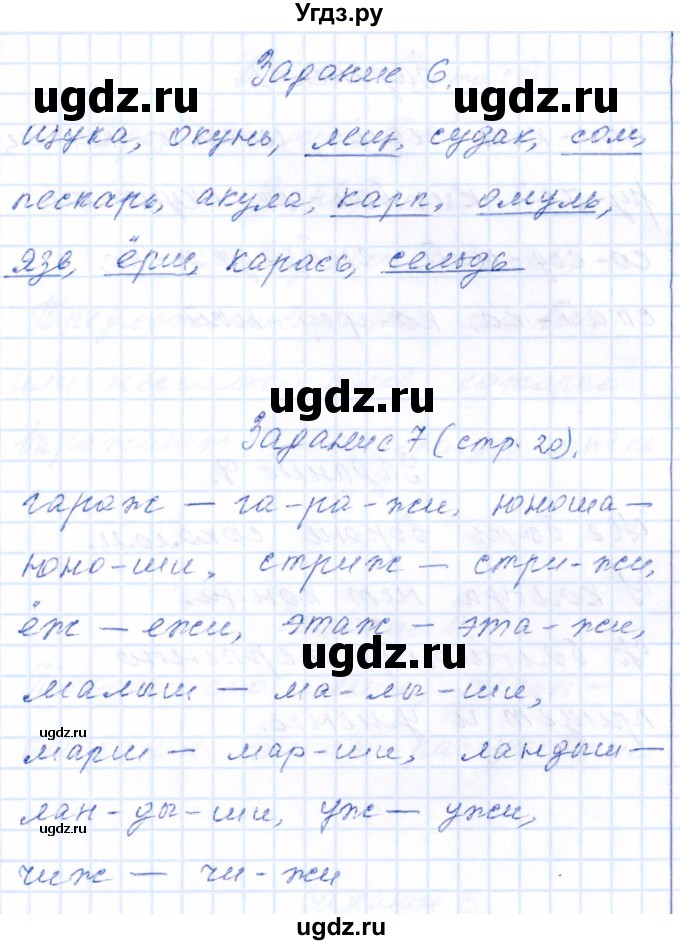 Угдз.ру
Задание 6.
ugdz.ru ugdz.ru
Щука, окунь, лещ, судак, сом,
пескарь, акула, карп, омуль,
язь, ёрш, карась, сельдь
ugdz.ru
Задание 7 (стр. 20).
гараж — га-ра-жи, юноша —
юно-ши, стриж — стри-жи,
ёж — ежи, этаж — эта-жи,
ugdz.ru
малыш — ма-лы-ши,
ugdz.ru
марш — мар-ши, ландыш —
лан-ды-ши, уж — ужи,
ugdz.ru
чиж — чи-жи
ugdz.ru